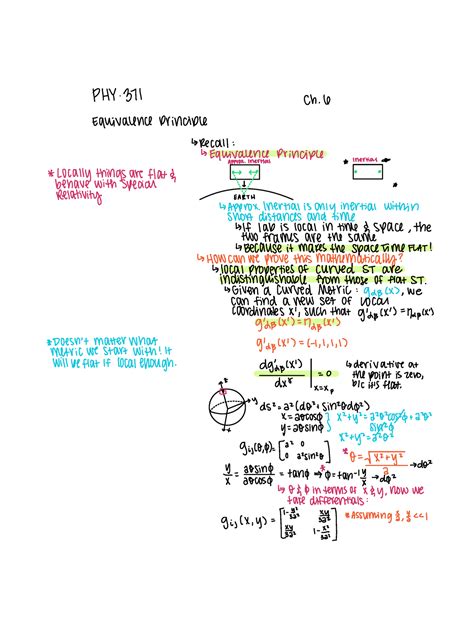 PHY·371
Ch. 6
Equivalence Principle
↳ Recall:
↳ Equivalence Principle
Approx. Inertial
Inertial
EARTH
* Locally things are flat &
behave with Special
Relativity
↳ Approx Inertial is only inertial within
short distances and time
↳ If lab is local in time & space, the
two frames are the same
↳ Because it makes the space time FLAT!
↳ How can we prove this mathematically?
↳ local properties of curved ST are
indistinguishable from those of flat ST.
↳ Given a curved metric: gαβ(x), we
can find a new set of local
coordinates x', such that g'αβ(x') = ηαβ(x')
g'αβ(x') = ηαβ(x')
g'αβ(x') = (-1,1,1,1)
* Doesn't matter what
metric we start with! It
will be flat if local enough.
dg'αβ(x')/dxγ | x=xp = 0
↳ derivative at
the point is zero,
b/c it's flat.
z
y
x
ds² = a²(dθ² + sin²θdϕ²)
x = aθcosϕ
y = aθsinϕ
x²+y² = a²θ²cos²ϕ + a²θ²
sin²ϕ
x²+y² = a²θ²
gij(θ,ϕ) = [a² 0
0 a²sin²θ]
* θ = √(x²+y²)/a → dθ²
y/x = aθsinϕ/aθcosϕ = tanϕ ⇒ ϕ = tan⁻¹ y/x → dϕ²
↳ θ & ϕ in terms of x & y, now we
take differentials:
gij(x,y) = [1-y²/3a² xy/3a²
xy/3a² 1-x²/3a²]
* Assuming x/a, y/a <<1